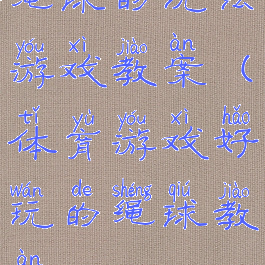 绳球的玩法
yóu xì jiào àn
游戏教案(
tǐ yù yóu xì hǎo
体育游戏好
wán de shéng qiú jiào
玩的绳球教
àn